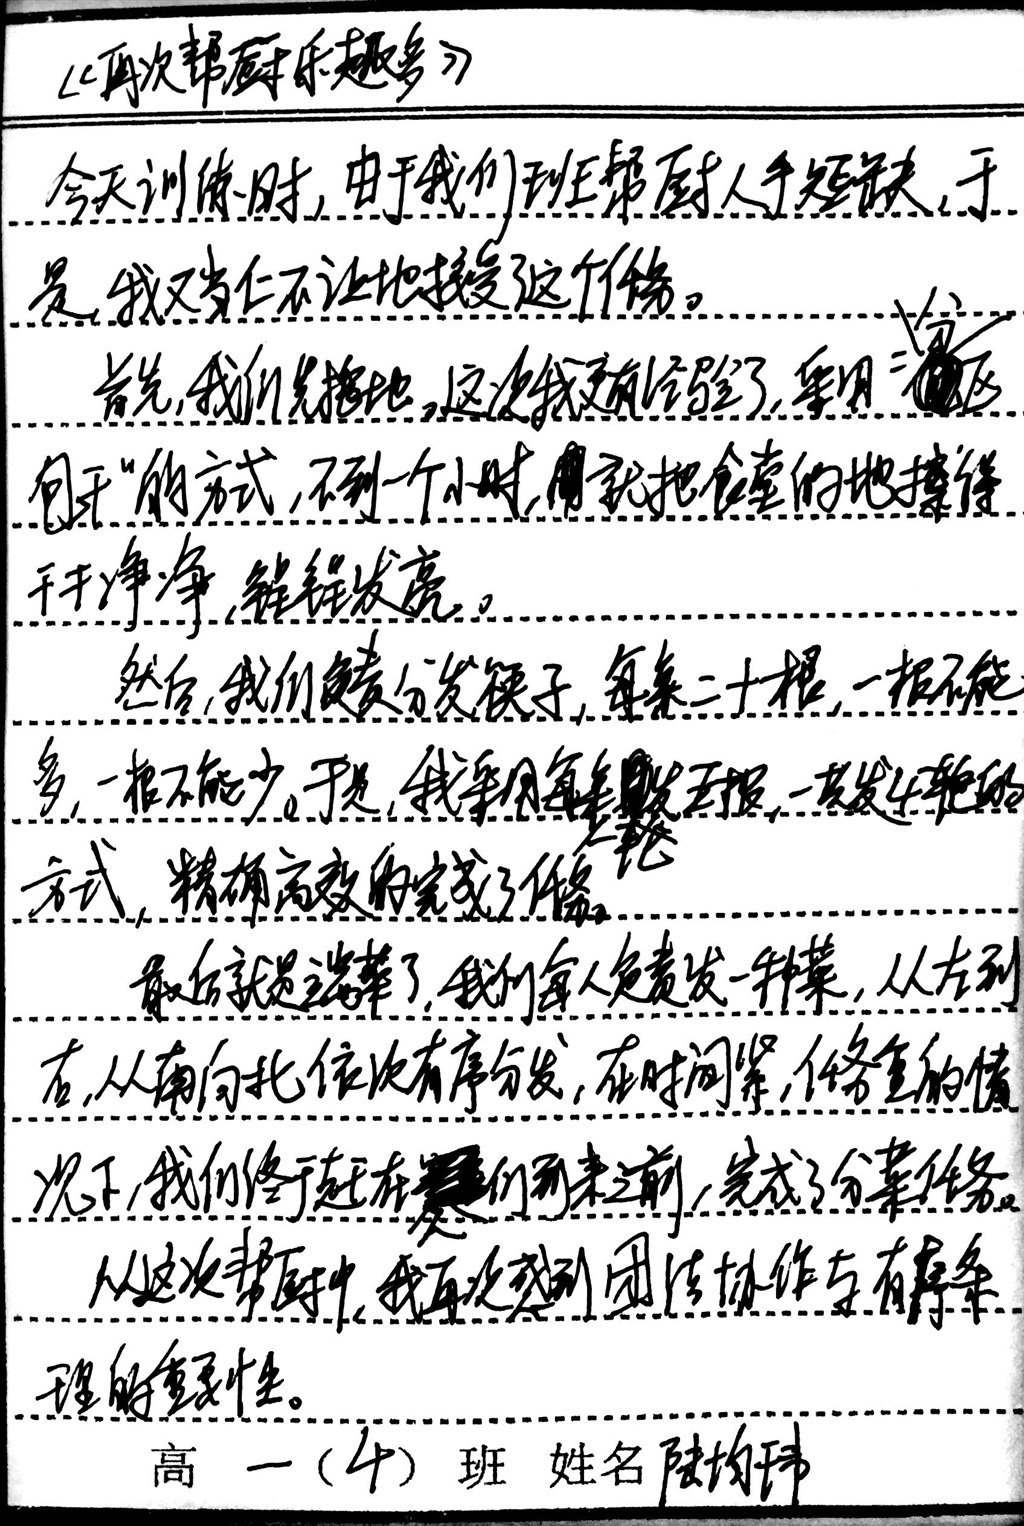 《再次帮厨乐趣多》
今天训练时，由于我们班帮厨人手短缺，于
是，我又当仁不让地接受了这个任务。
首先，我们先擦地。这次我更有经验了，采用“分区
包干”的方式，不到一个小时，就把食堂的地擦得
干干净净，锃锃发亮。
然后，我们负责分发筷子，每桌二十根，一根不能
多，一根不能少。于是，我采用每桌一轮发五根，一共发4轮的
方式，精确高效的完成了任务。
最后就是端菜了，我们每人负责发一种菜，从左到
右，从南向北依次有序分发，在时间紧，任务重的情
况下，我们终于赶在人们到来之前，完成了分菜任务。
从这次帮厨中，我再次感到团结协作与有序条
理的重要性。
高一（4）班 姓名 陆均玮